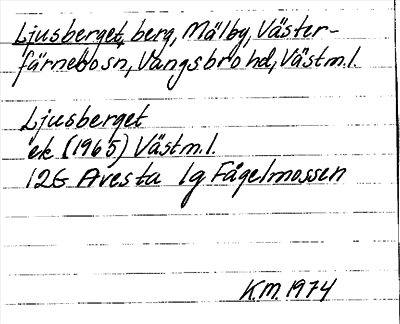 Ljusberget, berg, Mälby, Väster-
färnebo sn, Vangsbro hd, Västm.l.
Ljusberget
ek (1965) Västm.l.
12G Avesta 1g Fågelmossen
K.M. 1974